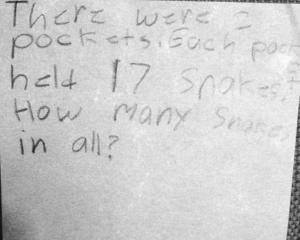 There were 2
pockets. Each
held 17 snakes.
How many snakes
in all?